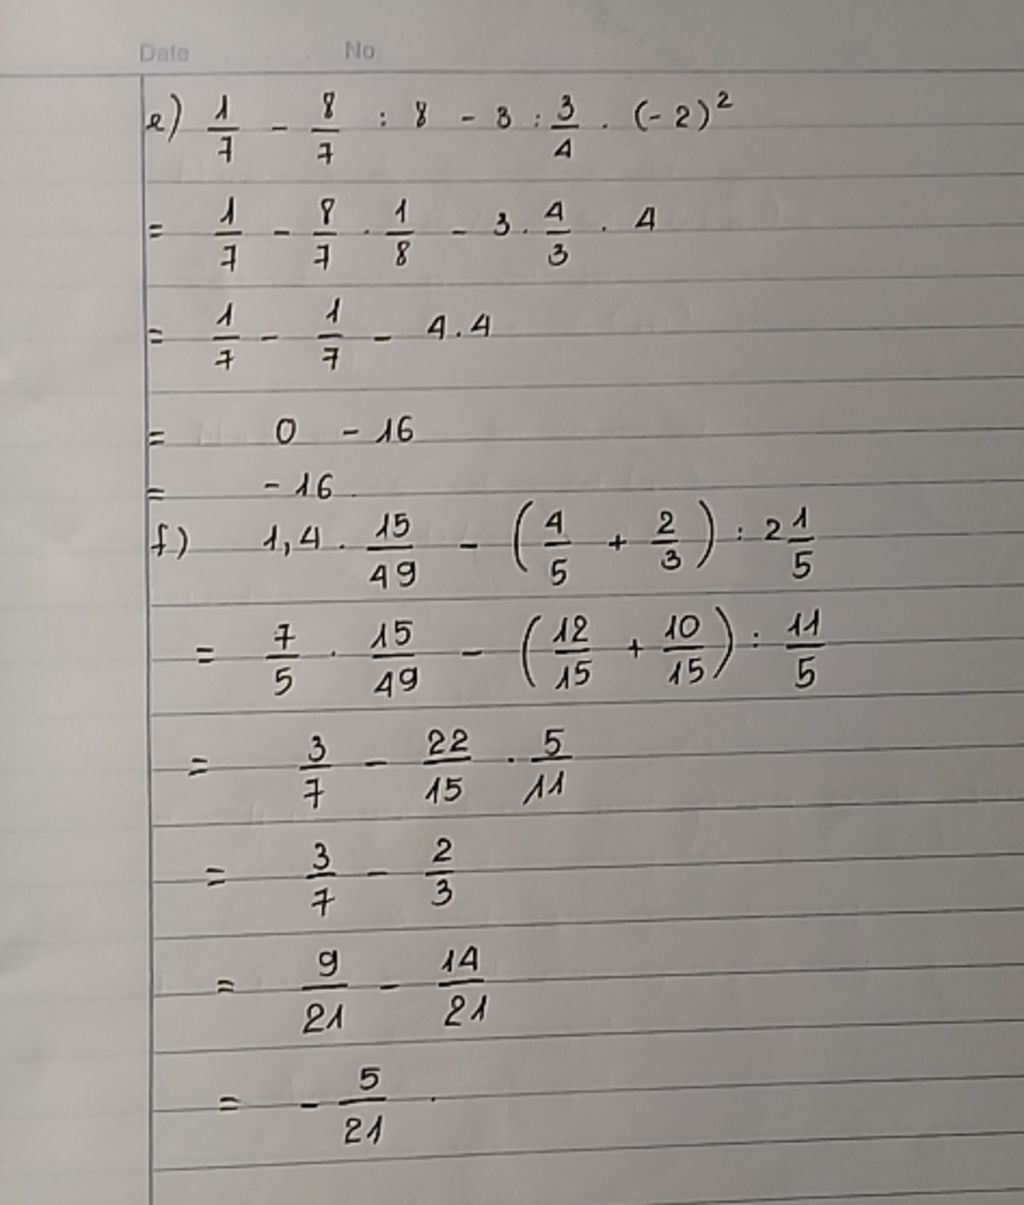 Date No
e) 1/7 - 8/7 : 8 - 3 : 3/4 . (-2)²
= 1/7 - 8/7 . 1/8 - 3 . 4/3 . 4
= 1/7 - 1/7 - 4.4
= 0 - 16
= -16.
f) 1,4 . 15/49 - (4/5 + 2/3) : 2 1/5
= 7/5 . 15/49 - (12/15 + 10/15) : 11/5
= 3/7 - 22/15 . 5/11
= 3/7 - 2/3
= 9/21 - 14/21
= - 5/21 .